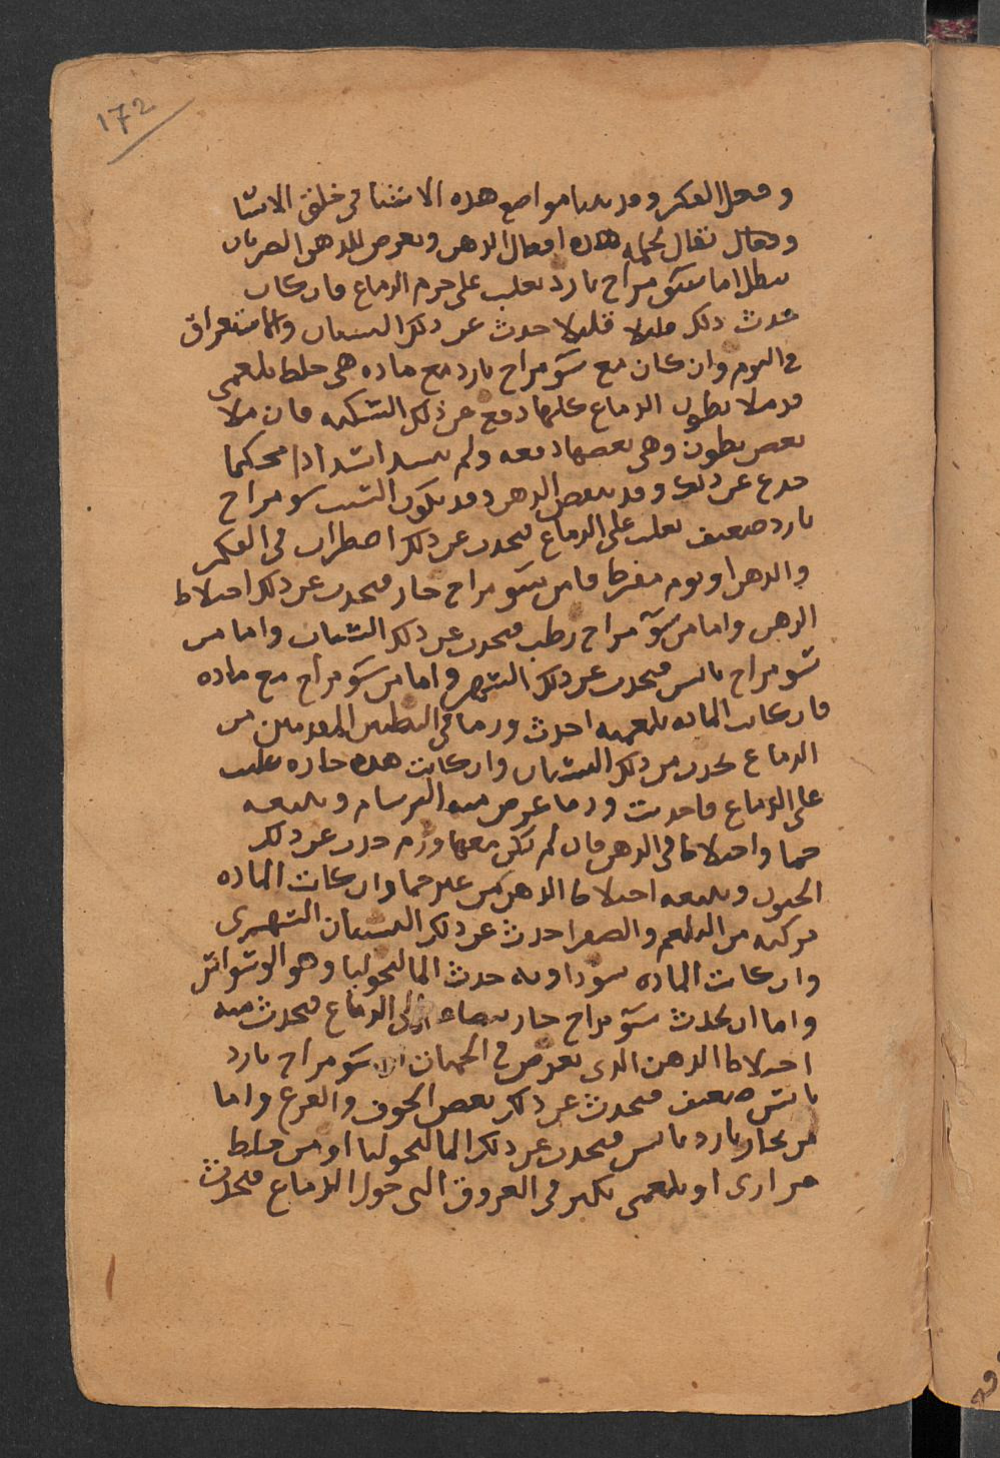 172
ومحل الفكر وقد بينا مواضع هذه الاشيا في خلق الاشيا
وفعال تقال لجمله هذه افعال الذهن ويعرض للذهن الضربان
يبطل اما بسو مزاج بارد يغلب على جرم الدماغ فان كان
حدث ذلك قليلا قليلا حدث عن ذلك النسيان والاستغراق
في النوم وان كان مع سو مزاج بارد مع ماده هي خلط بلغمي
قد ملا بطون الدماغ كلها دفعه عن ذلك السكته فان ملا
بعض بطون وهي بعضها دفعه ولم يسد اسدادا محكما
صرع عن ذلك وقد ينقص الذهن وقد يكون السبب سو مزاج
بارد ضعيف يغلب على الدماغ فيحدث عن ذلك اضطراب في الفكر
والذهن او نوم مفرط فاما من سو مزاج حار فيحدث عن ذلك اختلاط
الذهن واما من سو مزاج رطب فيحدث عن ذلك السبات واما من
سو مزاج يابس فيحدث عن ذلك السهر واما من سو مزاج مع ماده
فان كانت الماده بلغميه احدث ورما في البطنين المقدمين من
الدماغ يحدث من ذلك السبات وان كانت هذه حاره غلبت
على الدماغ فاحدثت ورما عرض منه البرسام ويتبعه
حما واختلاط في الذهن فان لم تكن معها ورم حدث عن ذلك
الجنون ويتبعه اختلاط الذهن من غير حما وان كانت الماده
مركبه من البلغم والصفرا حدث عن ذلك السبات السهرى
وان كانت الماده سوداويه حدث المالنحوليا وهو الوسواس
واما ان يحدث سو مزاج حار يتصاعد الى الدماغ فيحدث منه
اختلاط الذهن الذي يعرض في الحميات سو مزاج بارد
يابس ضعيف فيحدث عن ذلك بعض الخوف والفزع واما
من بخار بارد يابس فيحدث عن ذلك المالنحوليا او من خلط
مرارى او بلغمى يكثر في العروق التى حول الدماغ فيحدث